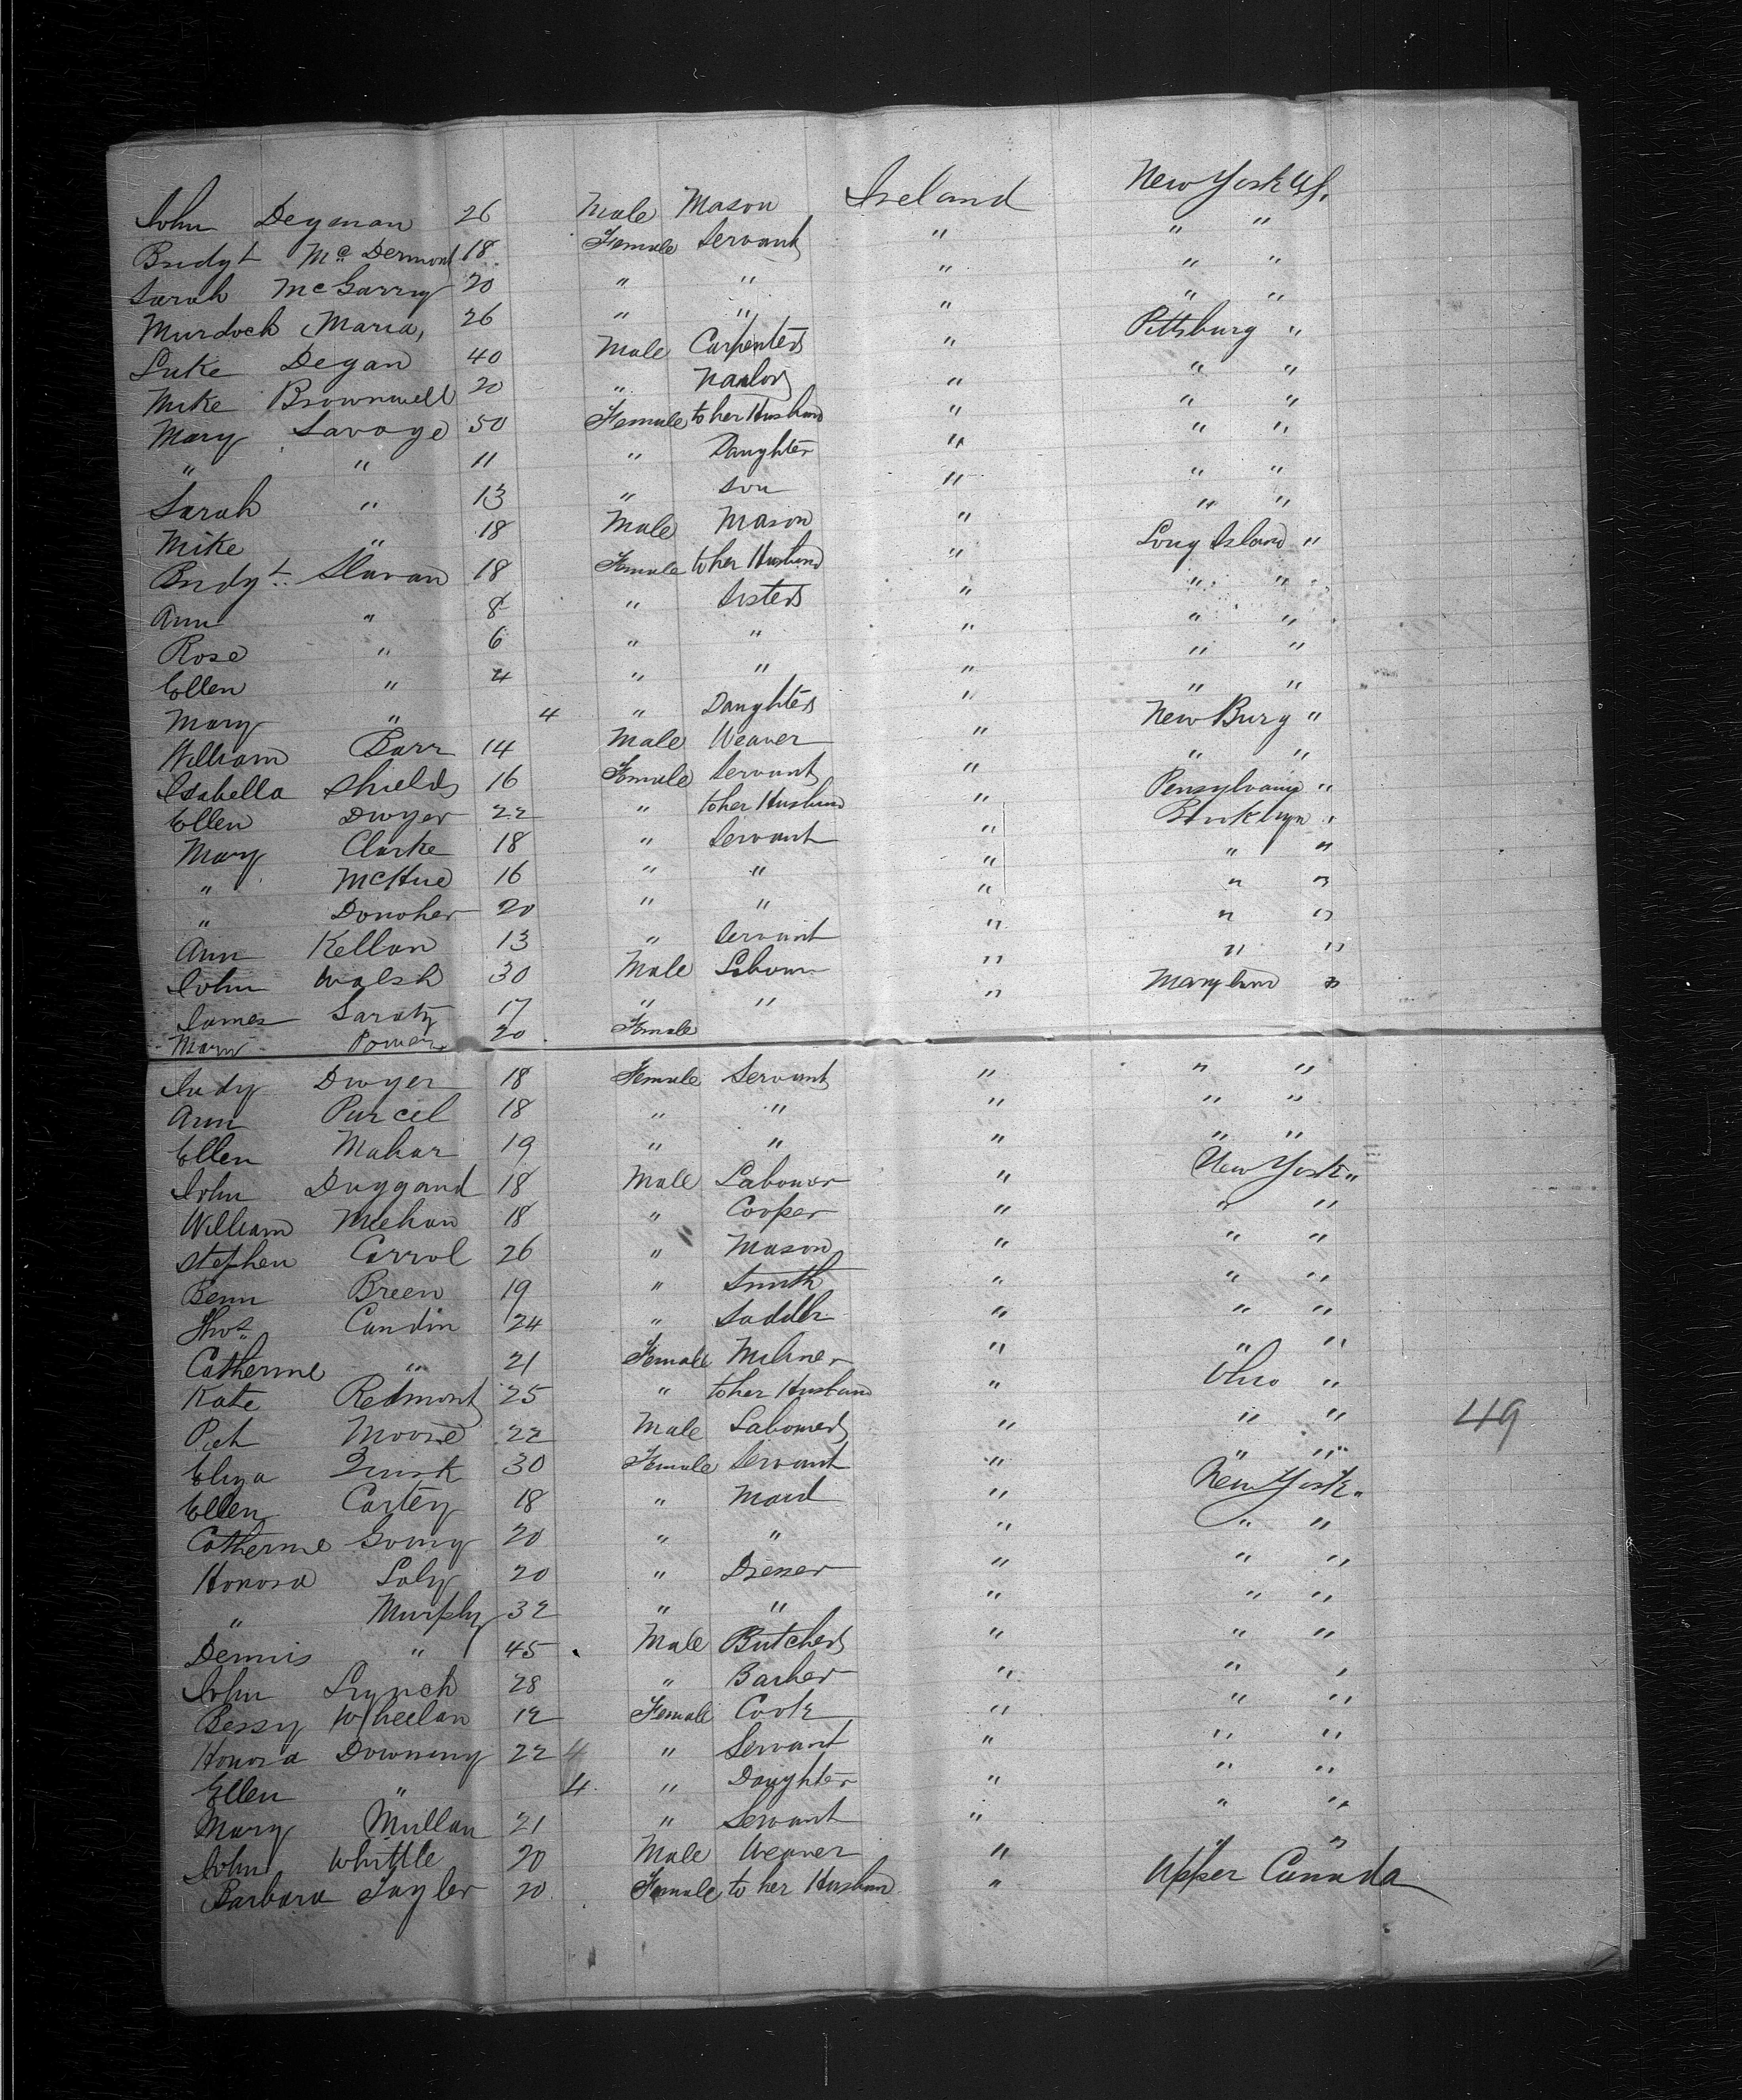 John Degman 26 Male Mason Ireland New York US,
Bridgt McDermont 18 Female Servant " " "
Sarah McGarry 20 " " " " "
Murdock Maria, 26 " " " " "
Luke Degan 40 Male Carpenter " Pittsburg "
Mike Brownwell 20 " " " "
Mary Savage 50 Female to her Husband " " "
" " 11 " Daughter " " "
Sarah " 13 " Son " " "
Mike " 18 Male Mason " " "
Bridgt Slavan 18 Female to her Husband " Long Island "
Ann " 8 " Sisters " " "
Rose " 6 " " " " "
Ellen " 4 " " " " "
Mary " 4 " Daughter " " "
William Barr 14 Male Weaver " New Burg "
Isabella Shields 16 Female Servant " " "
Ellen Dwyer 22 " to her Husband " Pensylvania "
Mary Clarke 18 " Servant " "
" McHue 16 " " " " "
" Donoher 20 " " " " "
Ann Kellan 13 " Servant " " "
John Walsh 30 Male Labour " " "
James 17 " " " Maryland "
Mary Power 20 Female
Judy Dwyer 18 Female Servant " " "
Ann Purcel 18 " " " " "
Ellen Mahar 19 " " " " "
John Duggand 18 Male Labourer " New York "
William Meehan 18 " Cooper " " "
Stephen Carrol 26 " Mason " " "
Benn Breen 19 " Smith " " "
Thos Candin 24 " Saddler " " "
Catherine " 21 Female Miliner " " "
Kate Redmond 25 " to her Husband " Ohio "
Pat Moore 22 Male Labourer " " " 49
Eliza Quirk 30 Female Servant " " "
Ellen Cartey 18 " Maid " New York "
Catherine 20 " " " " "
Honora Laly 20 " Dresser " " "
" Murphy 32 " " " " "
Dennis " 45 Male Butcher " " "
John Lynch 28 " Barber " " "
Bessy Wheelan 12 Female Cook " " "
Honora Downing 22 4 " Servant " " "
Ellen " 4 " Daughter " " "
Mary Mullan 21 " Servant " " "
John Whittle 20 Male Weaver " " "
Barbara Tayler 20 Female to her Husband " Upper Canada